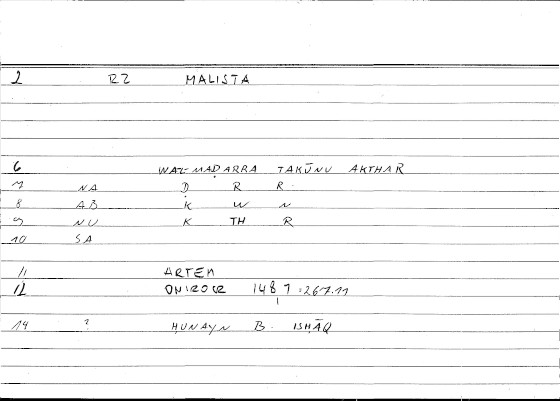 2 RZ MALISTA
6 WAL-MAḌARRA TAKŪNU AKTHAR
7 NA Ḍ R R
8 AB K W N
9 NU K TH R
10 SA
11 ARTEM
12 ONIROCR 148 7 = 267.11
14 ? ḤUNAYN B. ISḤĀQ